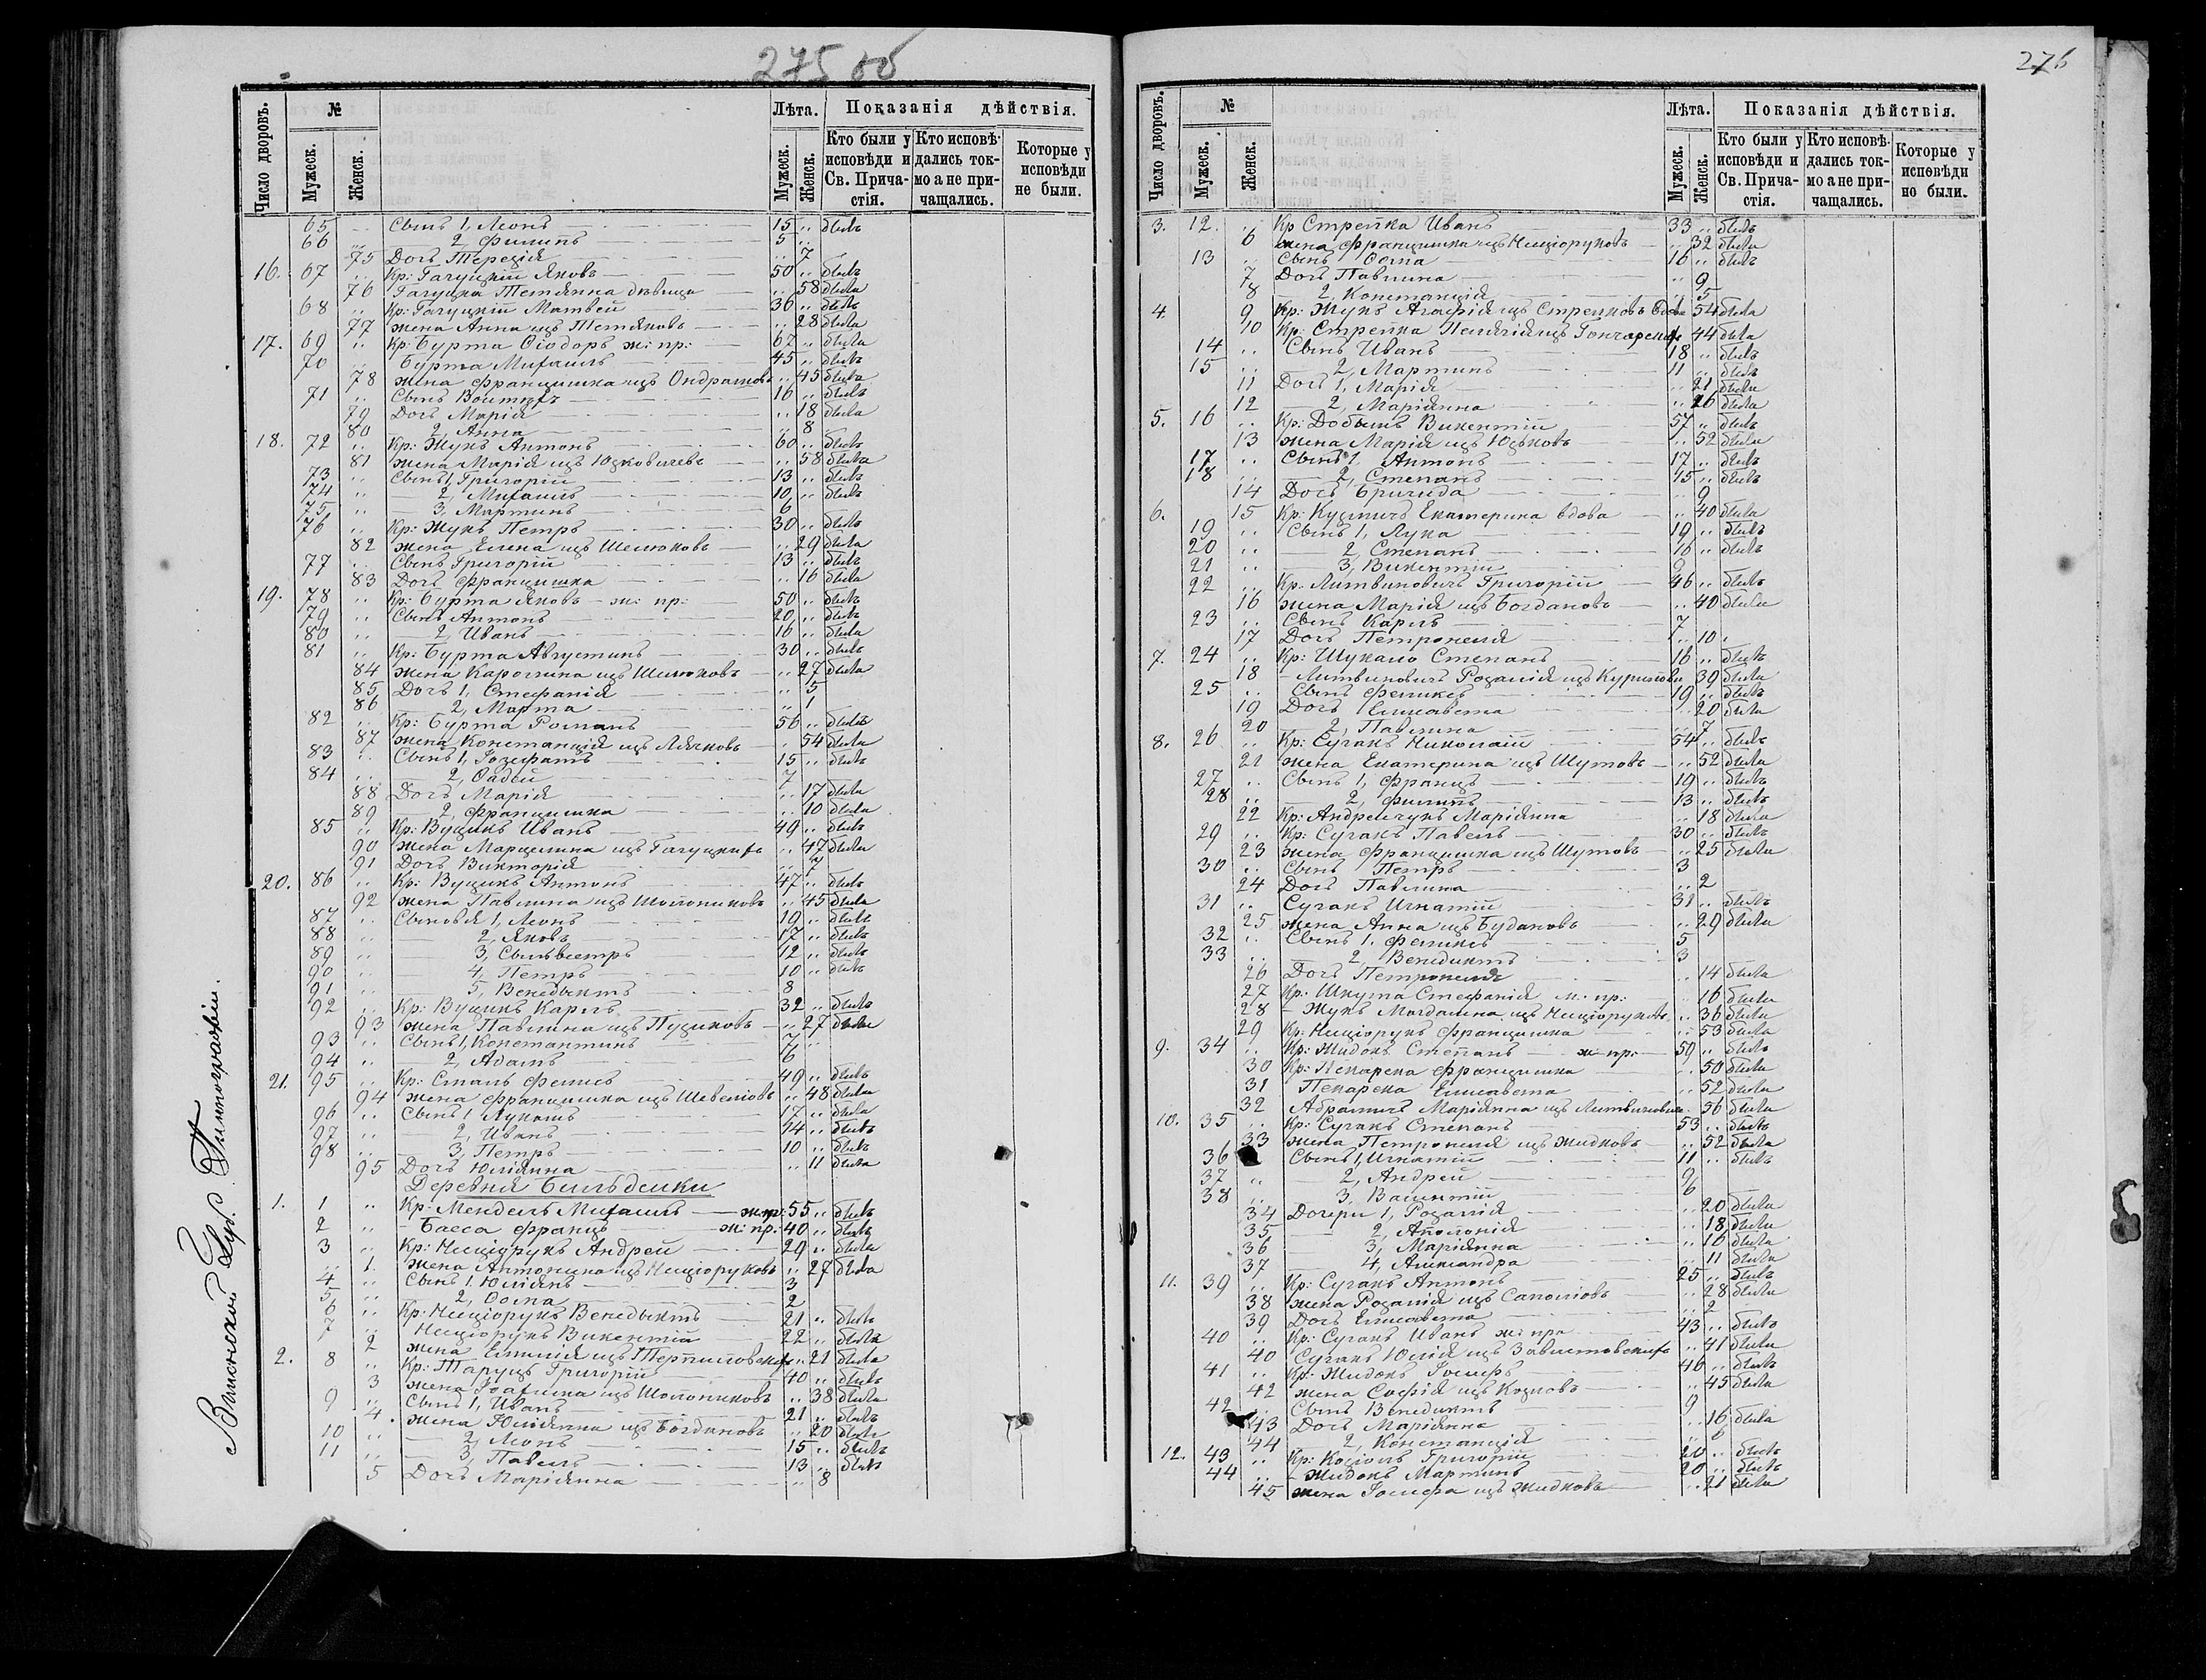 275 об
Число дворовъ. № Лѣта. Показанія дѣйствія.
Мужеск. Женск. Мужеск. Женск. Кто были у исповѣди и Св. Причастія. Кто исповѣдались токмо а не причащались. Которые у исповѣди не были.
65 Сынъ 1, Леонъ 15 былъ
66 2, Филипъ 5
75 Дочь Терезія 7
16. 67 Кр: Гачуцкій Яковъ 50 былъ
76 Гачуцка Тетянна дѣвица 58 была
68 Кр: Гачуцкій Матвей 36 былъ
77 жена Анна изъ Тетяковъ 28 была
17. 69 Кр: Бурта Ѳіодоръ ж: пр: 67 была
70 Бурта Михаилъ 45 былъ
78 жена Францишка изъ Ондрашовъ 45 была
71 Сынъ Войтѣхъ 16 былъ
79 Дочь Марія 18 была
80 2, Анна 8
18. 72 Кр: Жукъ Антонъ 60 былъ
81 жена Марія изъ Юзковичевъ 58 была
73 Сынъ 1, Григорій 13 былъ
74 2, Михаилъ 10 былъ
75 3, Мартинъ 6
76 Кр: Жукъ Петръ 30 былъ
82 жена Елена изъ Шелюковъ 29 была
77 Сынъ Григорій 13 былъ
83 Дочь Францишка 16 была
19. 78 Кр: Бурта Яковъ - ж: пр: 50 былъ
79 Сынъ Антонъ 20 былъ
80 2, Иванъ 16 была
81 Кр: Бурта Августинъ 30 былъ
84 жена Каролина изъ Шелюковъ 27 была
85 Дочь 1, Стефанія 5
86 2, Марта 1
82 Кр: Бурта Романъ 56 былъ
87 жена Констанція изъ Лячковъ 54 была
83 Сынъ 1, Іозефатъ 15 былъ
84 2, Ѳадей 7
88 Дочь Марія 17 была
89 2, Францишка 10 была
85 Кр: Вуцикъ Иванъ 49 былъ
90 жена Марцелина изъ Гачуцкихъ 47 была
91 Дочь Викторія 7
20. 86 Кр: Вуцикъ Антонъ 47 былъ
92 жена Павлина изъ Шолониковъ 45 была
87 Сыновья 1, Леонъ 19 былъ
88 2, Яковъ 17 былъ
89 3, Сыльвестръ 12 былъ
90 4, Петръ 10 былъ
91 5, Венедыктъ 8
92 Кр: Вуцикъ Карлъ 32 былъ
93 жена Павлина изъ Пуциковъ 27 была
93 Сынъ 1, Константинъ 7
94 2, Адамъ 6
21. 95 Кр: Сталь Фелисъ 49 былъ
94 жена Францишка изъ Шевелювъ 48 была
96 Сынъ 1 Лукашъ 17 была
97 2, Иванъ 14 былъ
98 3, Петръ 10 былъ
95 Дочь Юліянна 11 была
Деревня Бильдейки
1. 1 Кр: Мендель Михаилъ ж: пр: 55 былъ
2 - Баеса Францъ ж: пр: 40 былъ
3 Кр: Неціорукъ Андрей 29 была
1. жена Антонина изъ Неціоруковъ 27 была
4 Сынъ 1. Юліянъ 3
5 2, Ѳома 2
6 Кр: Неціорукъ Венедыктъ 21 былъ
7 Неціорукъ Викентій 22 былъ
2 жена Емилія изъ Терпиловскихъ 21 была
2. 8 Кр: Таруцъ Григорій 40 былъ
3 жена Іоахима изъ Шолониковъ 38 была
9 Сынъ 1, Иванъ 21 былъ
4. жена Юліянна изъ Богдановъ 20 была
10 2, Леонъ 15 былъ
11 3, Павелъ 13 былъ
5 Дочь Маріянна 8
Виленской Губ. Типографіи.
276
Число дворовъ. № Лѣта. Показанія дѣйствія.
Мужеск. Женск. Мужеск. Женск. Кто были у исповѣди и Св. Причастія. Кто исповѣдались токмо а не причащались. Которые у исповѣди но были.
3. 12. Кр Стрелка Иванъ 33 былъ
6 жена Францишка изъ Неціоруковъ 32 была
13 Сынъ Ѳома 16 былъ
7 Дочь Павлина 9
8 2, Констанція 5
4 9 Кр: Жукъ Агафія изъ Стрелковъ вдова 54 была
10 Кр: Стрелка Пелягія изъ Гончарскихъ 44 была
14 Сынъ Иванъ 18 былъ
15 2, Мартинъ 11 былъ
11 Дочь 1, Марія 21 была
12 2, Маріянна 16 была
5. 16 Кр: Добышъ Викентій 57 былъ
13 жена Марія изъ Юзьковъ 52 была
17 Сынъ 1, Антонъ 17 былъ
18 2, Степанъ 15 былъ
14 Дочь Бригида 9
6. 15 Кр: Кузмичъ Екатерина вдова 40 была
19 Сынъ 1, Лука 19 былъ
20 2, Степанъ 16 былъ
21 3, Викентій 8
22 Кр: Литвиновичъ Григорій 46 былъ
16 жена Марія изъ Богдановъ 40 была
23 Сынъ Карлъ 7
17 Дочь Петронеля 10
7. 24 Кр: Шукало Степанъ 16 былъ
18 - Литвиновичъ Розалія изъ Куриловъ 39 была
25 Сынъ Феликсъ 19 былъ
19 Дочь Елисавета 20 была
20 2, Павлина 7
8. 26 Кр: Сучакъ Николай 54 былъ
21 жена Екатерина изъ Шутовъ 52 была
27 Сынъ 1, Францъ 19 былъ
28 2, Филипъ 13 былъ
22 Кр: Андрейчукъ Маріянна 18 была
29 Кр: Сучакъ Павелъ 30 былъ
23 жена Францишка изъ Шутовъ 25 была
30 Сынъ Петръ 3
24 Дочь Павлина 2
31 Сучакъ Игнатій 31 былъ
25 жена Анна изъ Будановъ 29 была
32 Сынъ 1. Феликсъ 5
33 2, Венедиктъ 3
26 Дочь Петронеля 14 была
27 Кр: Шкута Стефанія м: пр: 16 была
28 - Жукъ Магдалина изъ Неціоруковъ 36 была
29 Кр: Неціорукъ Францишка 53 была
9. 34 Кр: Жидокъ Степанъ ж: пр: 59 былъ
30 Кр: Пекарска Францишка 50 была
31 Пекарска Елисавета 52 была
32 Абрамичъ Маріянна изъ Литвиновичъ 56 была
10. 35 Кр: Сучакъ Степанъ 53 былъ
33 жена Петронеля изъ Жидковъ 52 была
36 Сынъ 1, Игнатій 11 былъ
37 2, Андрей 9
38 3, Валентій 6
34 Дочери 1, Розалія 20 была
35 2, Аполонія 18 была
36 3, Маріянна 16 была
37 4, Александра 11 была
11. 39 Кр: Сучакъ Антонъ 25 былъ
38 жена Розалія изъ Саполювъ 28 была
39 Дочь Елисавета 2
40 Кр: Сучакъ Иванъ ж: пра 43 былъ
40 Сучакъ Юлія изъ Завистовскихъ 41 была
41 Кр: Жидокъ Іосифъ 46 былъ
42 жена Софія изъ Козловъ 45 была
42 Сынъ Венедиктъ 9
43 Дочь Маріянна 16 была
44 2, Констанція 6
12. 43 Кр: Козіолъ Григорій 20 былъ
44 - Жидокъ Мартинъ 20 былъ
45 жена Іосифа изъ Жидковъ 21 была